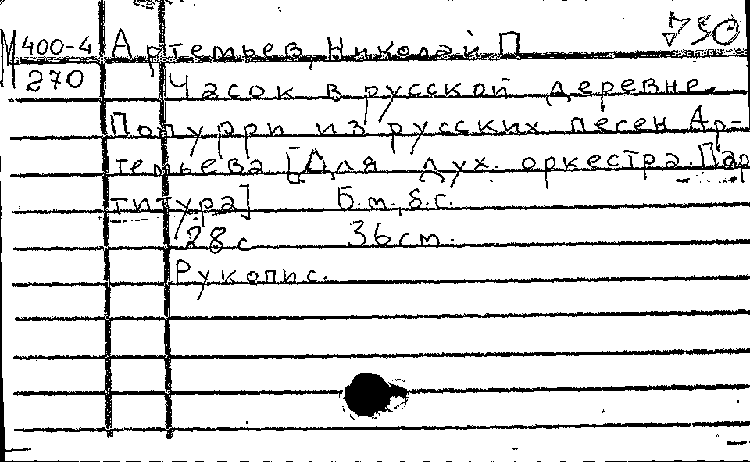 М 400-4 Артемьев, Николай П. 750
270 Часок в русской деревне.
Попурри из русских песен Ар-
темьева [Для дух. оркестра. Пар
титура] Б.м., б.г.
28 с 36 см.
Рукопис.